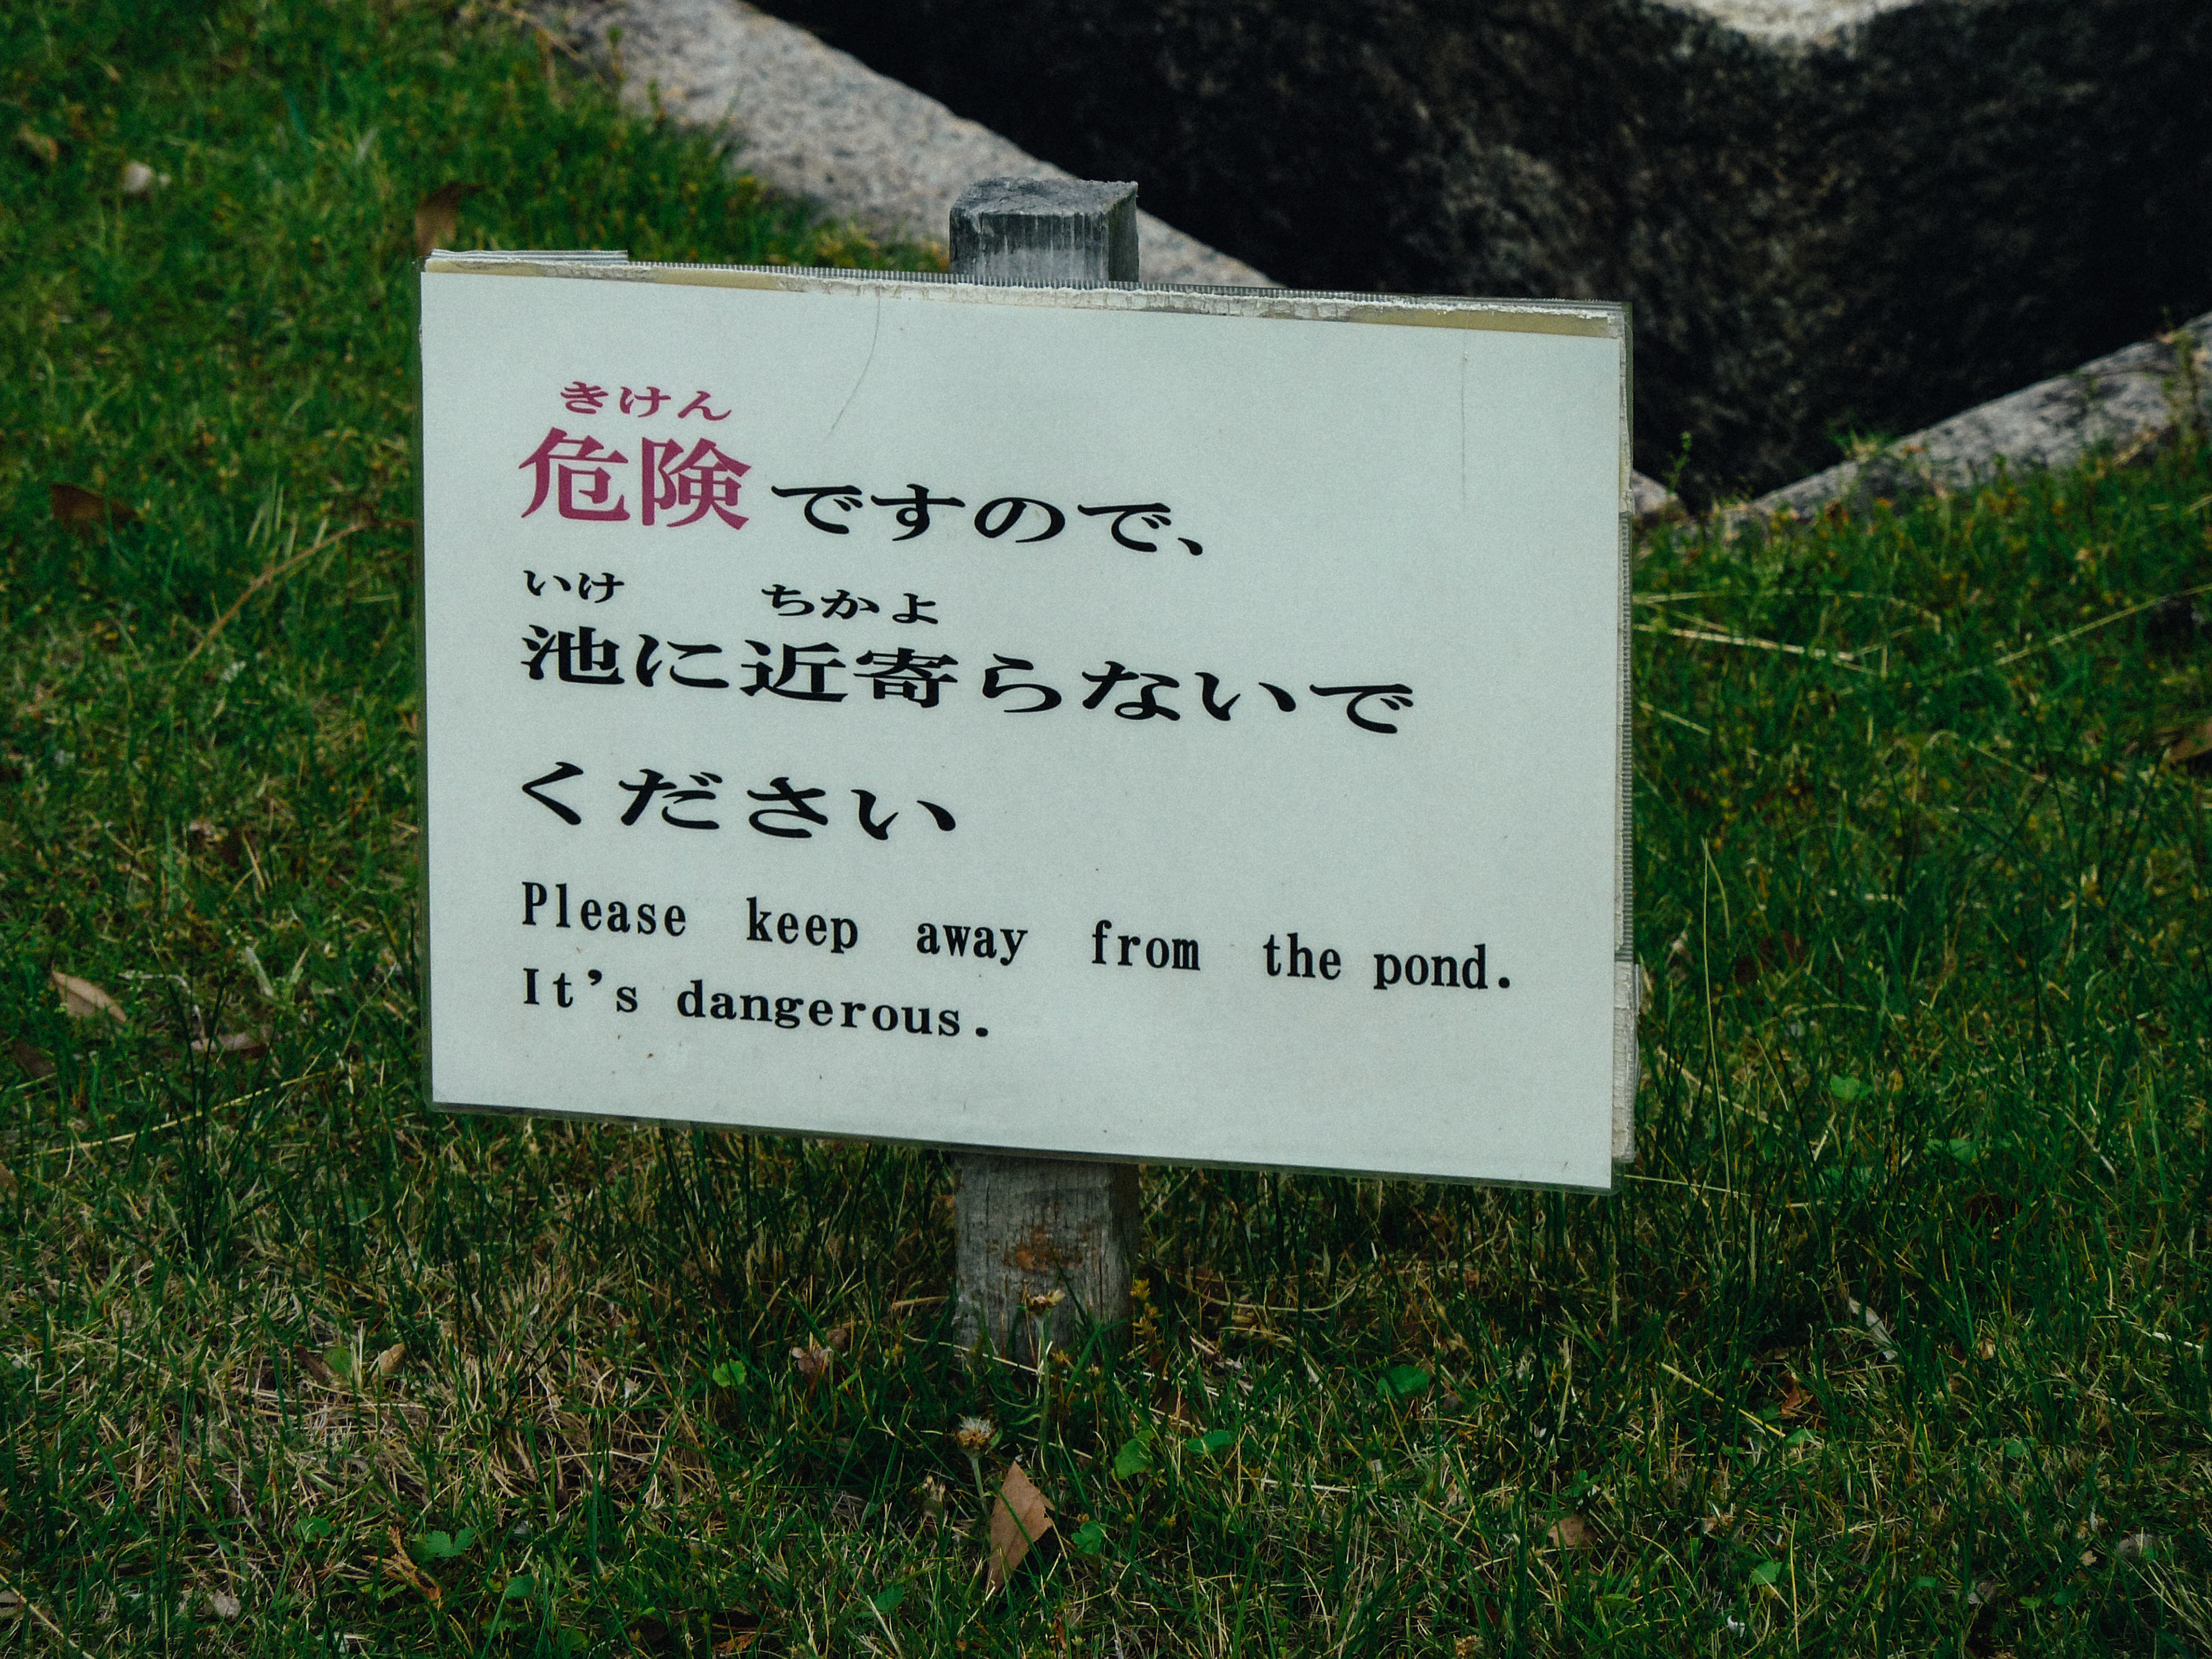 きけん
危険ですので、
いけ ちかよ
池に近寄らないで
ください
Please keep away from the pond.
It's dangerous.